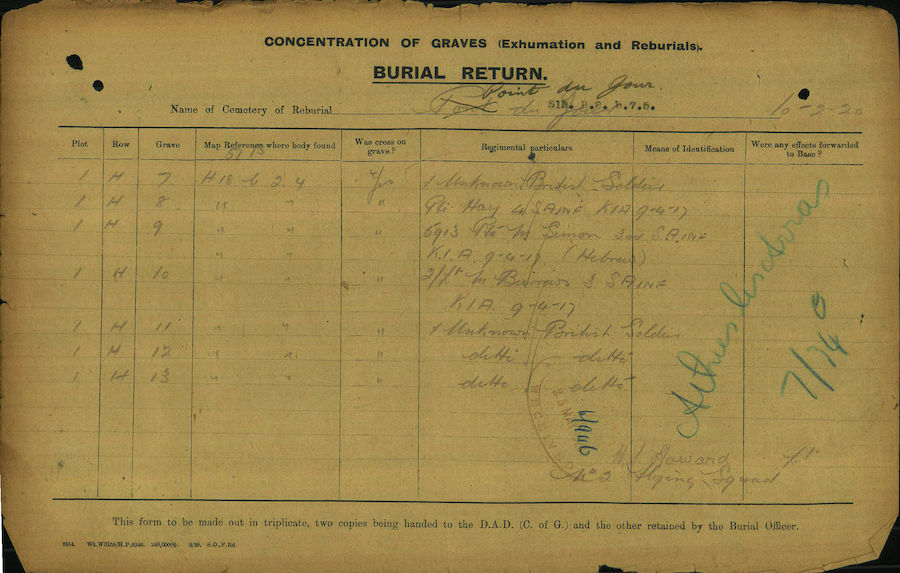 CONCENTRATION OF GRAVES (Exhumation and Reburials).
BURIAL RETURN.
Point du Jour.
Name of Cemetery of Reburial du Jour 51B. H.8. b.7.5. 10-2-20
Plot Row Grave Map Reference where body found Was cross on grave? Regimental particulars Means of Identification Were any effects forwarded to Base?
51B
1 H 7 H 18 b 2.4 Yes 1 Unknown British Soldier
1 H 8 " " " Pte Hay 4 S A INF KIA 9-4-17
1 H 9 " " " 5913 Pte M Simon 3rd S A INF
" " K.I.A 9-4-17 (Hebrew)
1 H 10 " " " 2/Lt M Burrows 3 S A INF
KIA 9-4-17
1 H 11 " " 1 Unknown British Soldier
1 H 12 " " " ditto ditto
1 H 13 " " " ditto ditto
RECEIVED
7/14
Howard Lt
No 2 Flying Squad
This form to be made out in triplicate, two copies being handed to the D.A.D. (C. of G.) and the other retained by the Burial Officer.